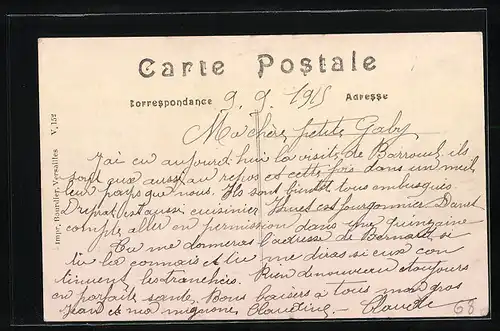 Carte Postale
Correspondance 9. 9. 1915 Adresse
Ma chère petite Gaby
J'ai eu aujourd'hui la visite de Barroud, ils
sont eux aussi au repos et cette fois dans un meil
leur pays que nous. Ils sont bientôt tous embusqués
est aussi cuisinier est fourgonnier
compte aller en permission dans une quinzaine
Tu me donneras l'adresse de Bernard si
tu la connais et tu me diras si eux con
tinuent les tranchées. Rien de nouveau et toujours
en parfaite santé. Bons baisers à tous mon gros
Jean et ma mignonne Claudine - Claude
68
Impr. Bourdier, Versailles V. 152